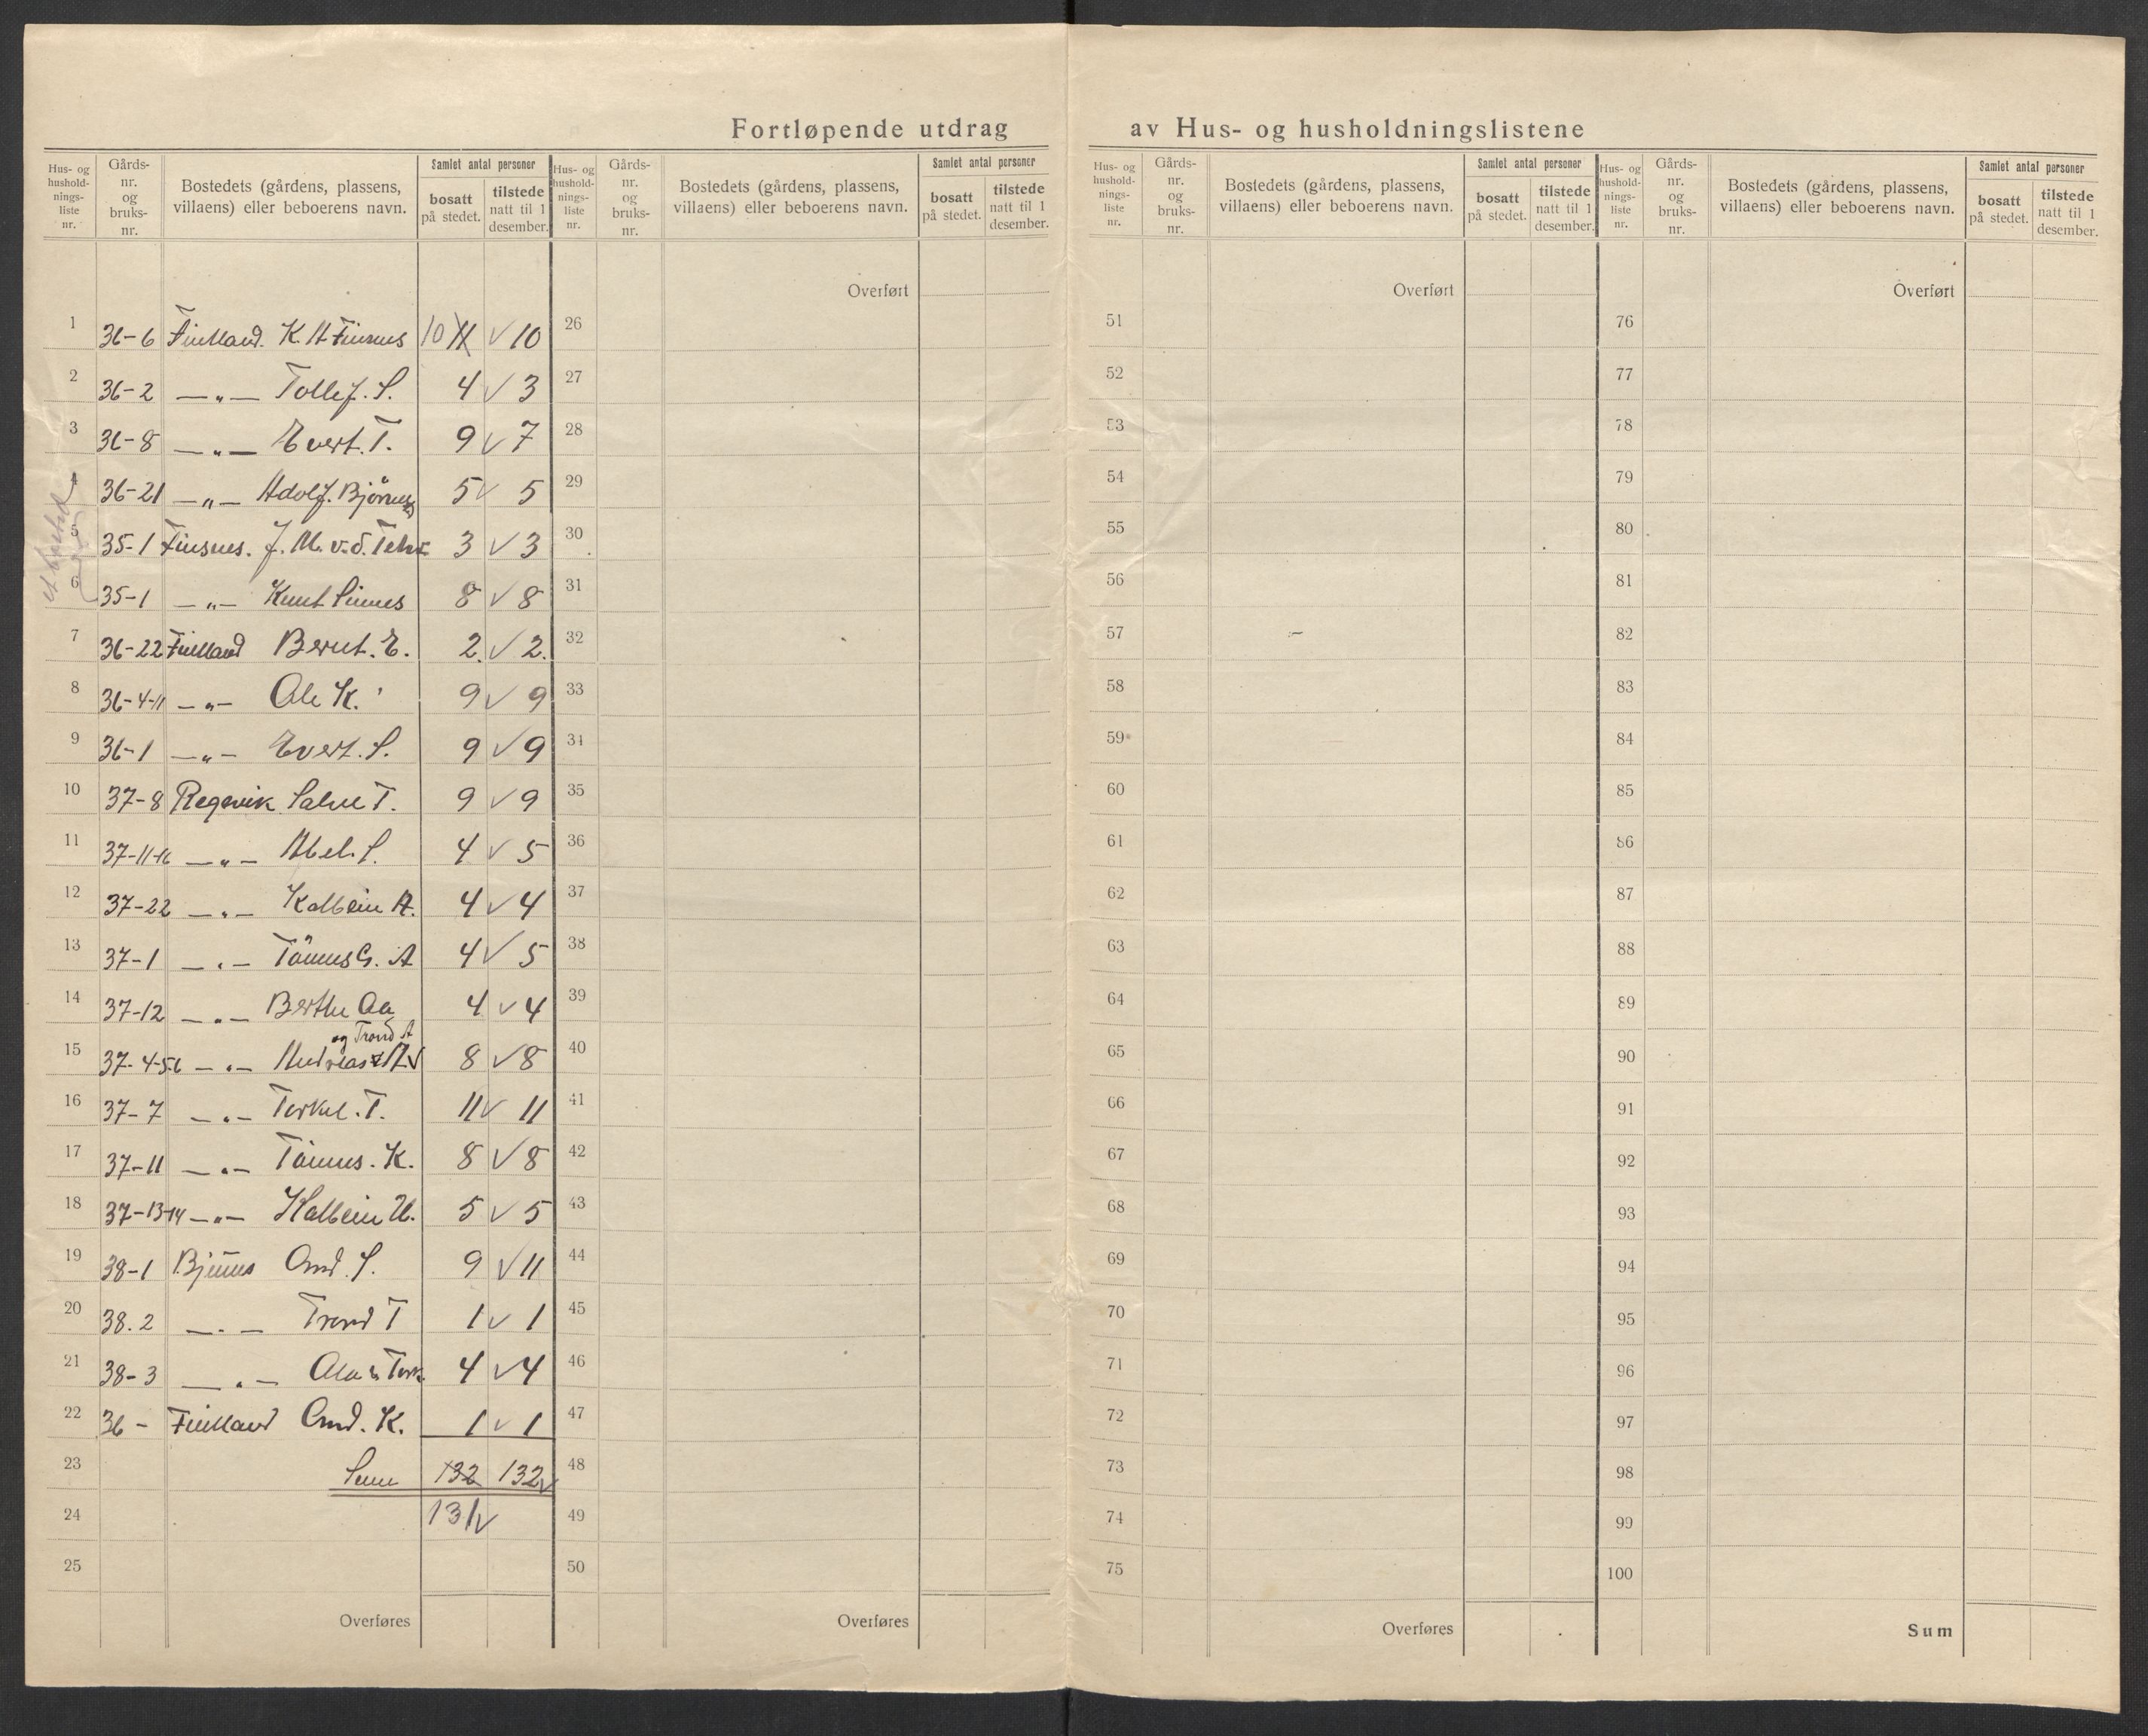 Fortløpende utdrag av Hus- og husholdningslistene
Hus- og husholdningsliste nr. | Gårds-nr. og bruks-nr. | Bostedets (gårdens, plassens, villaens) eller beboerens navn. | Samlet antal personer bosatt på stedet. | tilstede natt til 1 desember.
Hus- og husholdningsliste nr. | Gårds-nr. og bruks-nr. | Bostedets (gårdens, plassens, villaens) eller beboerens navn. | Samlet antal personer bosatt på stedet. | tilstede natt til 1 desember.
Hus- og husholdningsliste nr. | Gårds-nr. og bruks-nr. | Bostedets (gårdens, plassens, villaens) eller beboerens navn. | Samlet antal personer bosatt på stedet. | tilstede natt til 1 desember.
Hus- og husholdningsliste nr. | Gårds-nr. og bruks-nr. | Bostedets (gårdens, plassens, villaens) eller beboerens navn. | Samlet antal personer bosatt på stedet. | tilstede natt til 1 desember.
Overført Overført Overført
1 36-6 Fintland. K. A Finsnes 10 11 ✓ 10 26 51 76
2 36-2 —„— Tollef. S. 4 ✓ 3 27 52 77
3 36-8 —„— Evert. T. 9 ✓ 7 28 53 78
4 36-21 —„— Adolf. 5 ✓ 5 29 54 79
5 35-1 Finsnes. J. M. v.d. 3 ✓ 3 30 55 80
6 35-1 —„— Knut 8 ✓ 8 31 56 81
7 36-22 Fintland Bernt. E. 2. ✓ 2. 32 57 82
8 36-4-11 —„— Ole K. 9 ✓ 9 33 58 83
9 36-1 —„— Evert. S. 9 ✓ 9 34 59 84
10 37-8 Regevik Salve T. 9 ✓ 9 35 60 85
11 37-11-16 —„— Abel. S. 4 ✓ 5 36 61 86
12 37-22 —„— Kolbein A. 4 ✓ 4 37 62 87
13 37-1 —„— Tönnes G. A 4 ✓ 5 38 63 88
14 37-12 —„— Berthe Aa 4 ✓ 4 39 64 89
og Trond A
15 37-4-5-6 —„— Andreas 8 ✓ 8 40 65 90
16 37-7 —„— Torkel. T. 11 ✓ 11 41 66 91
17 37-11 —„— Tönnes. K. 8 ✓ 8 42 67 92
18 37-13-14 —„— Kolbein 5 ✓ 5 43 68 93
19 38-1 Bjunes Omd. S. 9 ✓ 11 44 69 94
20 38.2 —„— Trond T 1 ✓ 1 45 70 95
21 38-3 —„— 4 ✓ 4 46 71 96
22 36- Fintland Omd. K. 1 ✓ 1 47 72 97
23 Sum 132 132 ✓ 48 73 98
24 131 ✓ 49 74 99
25 50 75 100
Overføres Overføres Overføres Sum